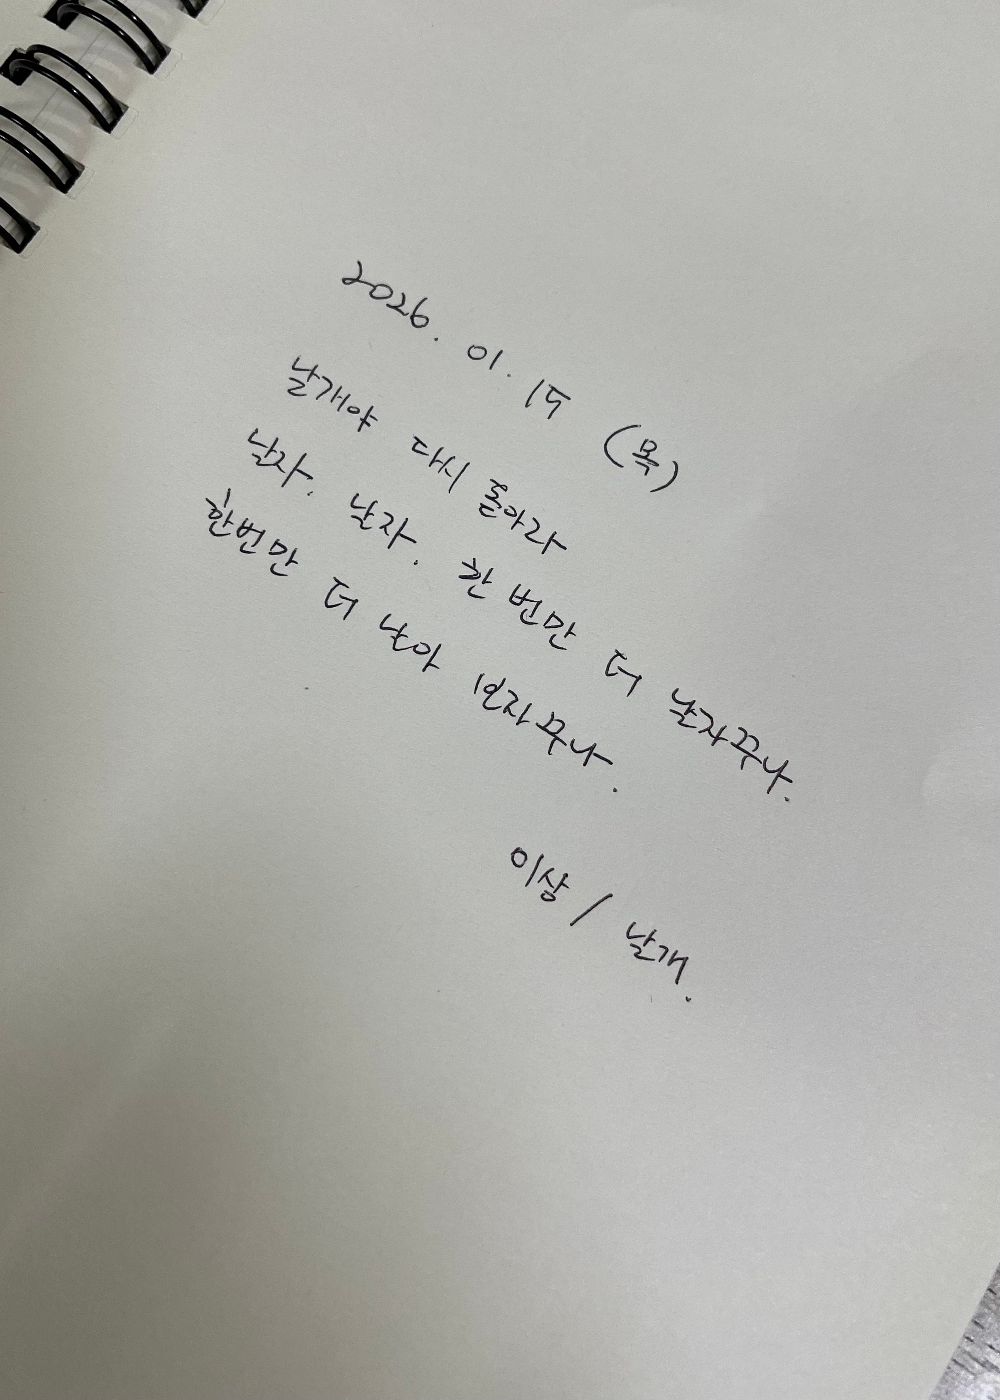 2026. 01. 15 (목)
날개야 다시 돋아라
날자. 날자. 한 번만 더 날자꾸나.
한번만 더 날아 보자꾸나.
이상 / 날개.